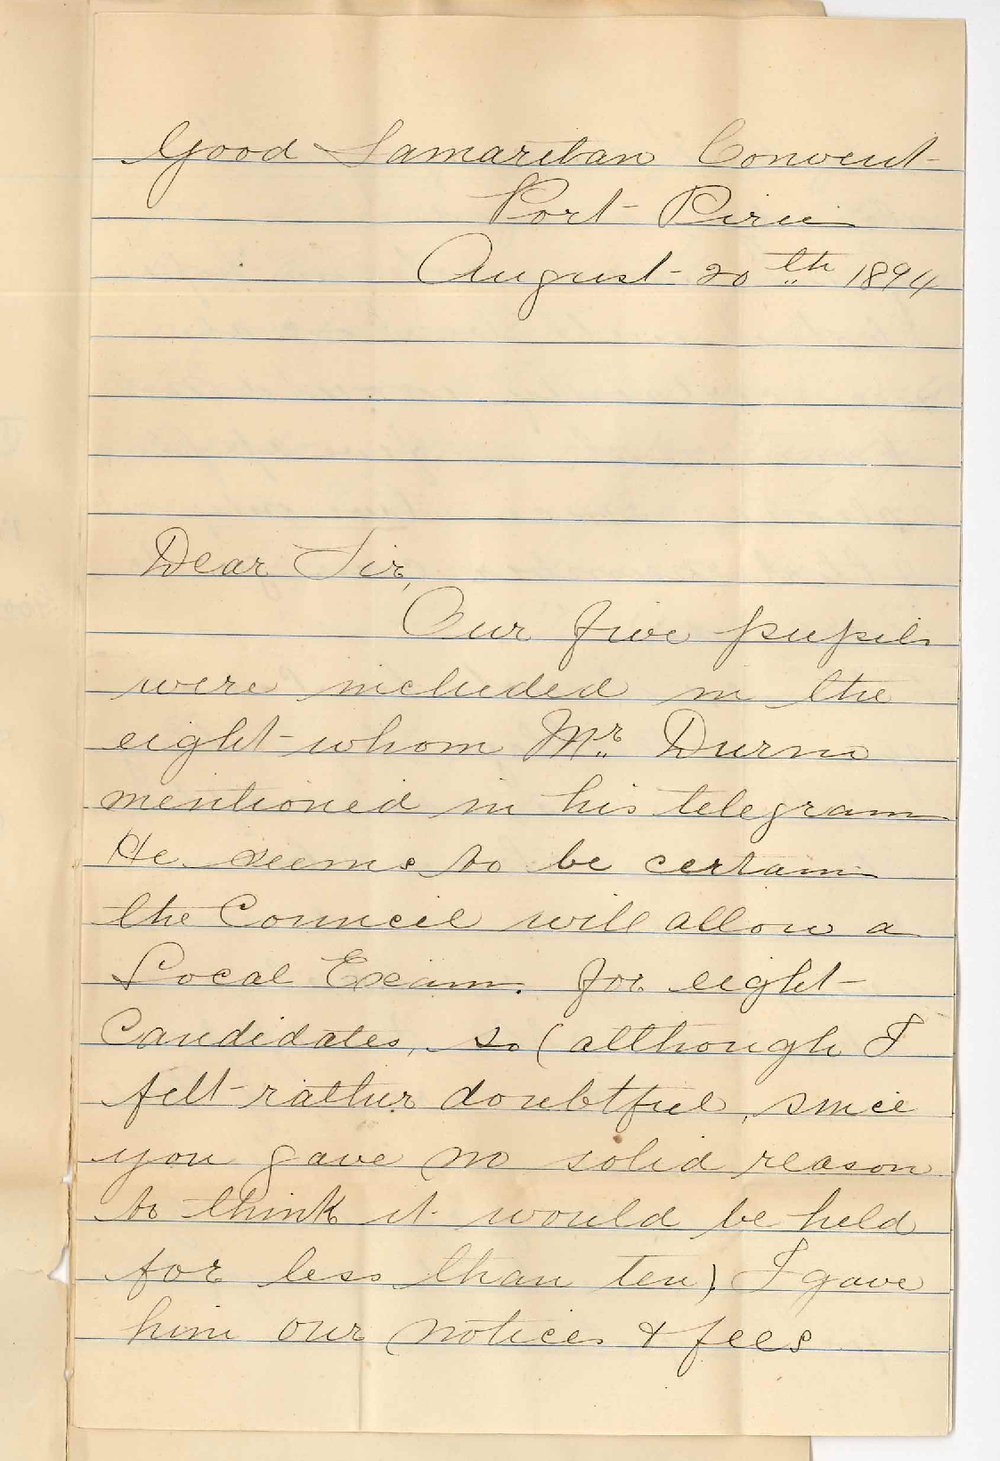 Good Samaritan Convent
Port Pirie
August 20th 1894
Dear Sir,
Our five pupils
were included in the
eight whom Mr. Durno
mentioned in his telegram
He seems to be certain
the Council will allow a
Local Exam. for eight
Candidates, so (although I
felt rather doubtful, since
you gave no solid reason
to think it would be held
for less than ten) I gave
him our notices & fees